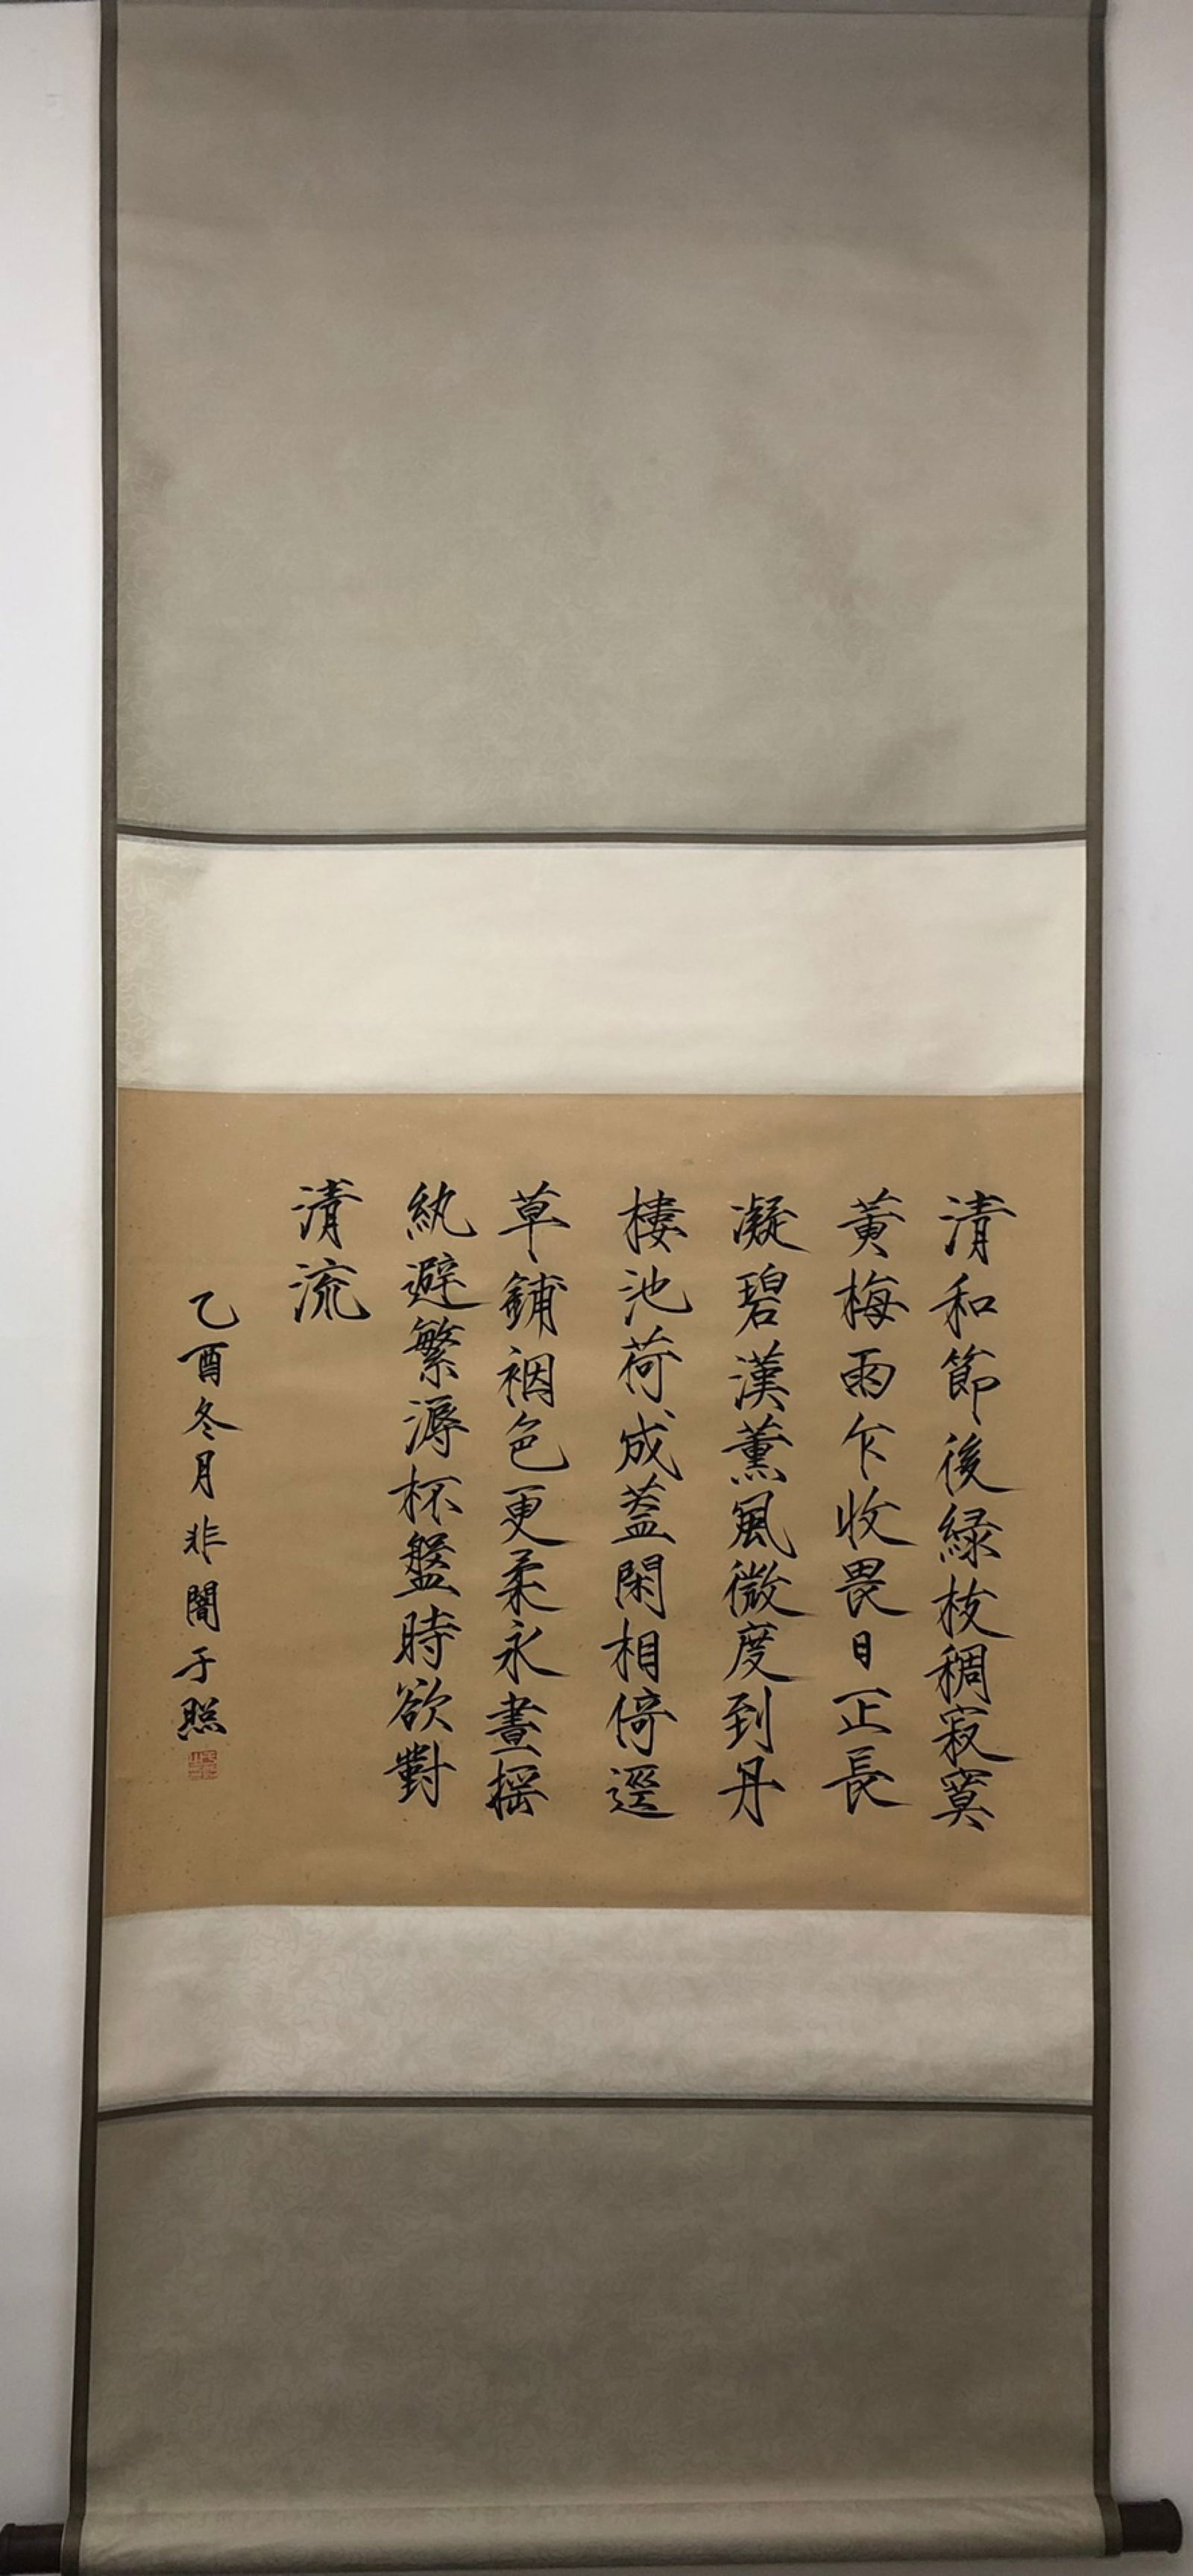 清和節後緑枝稠寂寞
黄梅雨乍收畏日正長
凝碧漢薰風微度到丹
樓池荷成蓋閑相倚逕
草鋪裀色更柔永晝揺
紈避繁溽杯盤時欲對
清流
乙酉冬月非闇于照